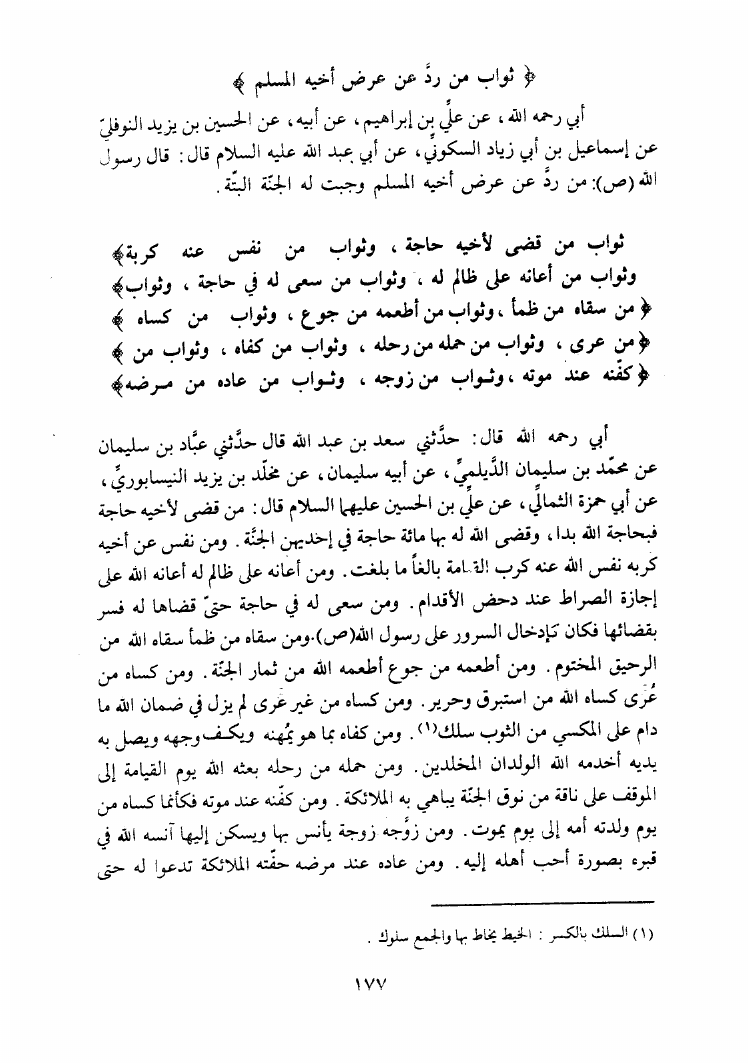 ﴿ ثواب من ردَّ عن عرض أخيه المسلم ﴾
أبي رحمه الله، عن عليِّ بن إبراهيم، عن أبيه، عن الحسين بن يزيد النوفليّ
عن إسماعيل بن أبي زياد السكونيِّ، عن أبي عبد الله عليه السلام قال: قال رسول
الله (ص): من ردَّ عن عرض أخيه المسلم وجبت له الجنّة البتّة.
ثواب من قضى لأخيه حاجة، وثواب من نفس عنه كربة﴾
وثواب من أعانه على ظالم له، وثواب من سعى له في حاجة، وثواب﴾
﴿من سقاه من ظمأ، وثواب من أطعمه من جوع، وثواب من كساه ﴾
﴿من عرى، وثواب من حمله من رحله، وثواب من كفاه، وثواب من ﴾
﴿كفّنه عند موته، وثواب من زوجه، وثواب من عاده من مرضه﴾
أبي رحمه الله قال: حدَّثني سعد بن عبد الله قال حدَّثني عبَّاد بن سليمان
عن محمّد بن سليمان الدَّيلميِّ، عن أبيه سليمان، عن مخلّد بن يزيد النيسابوريِّ،
عن أبي حمزة الثماليِّ، عن عليِّ بن الحسين عليهما السلام قال: من قضى لأخيه حاجة
فبحاجة الله بدا، وقضى الله له بها مائة حاجة في إحديهن الجنَّة. ومن نفس عن أخيه
كربه نفس الله عنه كرب القيامة بالغاً ما بلغت. ومن أعانه على ظالم له أعانه الله على
إجازة الصراط عند دحض الأقدام. ومن سعى له في حاجة حتىّ قضاها له فسر
بقضائها فكان كإدخال السرور على رسول الله(ص).ومن سقاه من ظمأ سقاه الله من
الرحيق المختوم. ومن أطعمه من جوع أطعمه الله من ثمار الجنّة. ومن كساه من
عُرَى كساه الله من استبرق وحرير. ومن كساه من غير عرى لم يزل في ضمان الله ما
دام على المكسي من الثوب سلك(١). ومن كفاه بما هو يمُهنه ويكف وجهه ويصل به
يديه أخدمه الله الولدان المخلدين. ومن حمله من رحله بعثه الله يوم القيامة إلى
الموقف على ناقة من نوق الجنّة يباهي به الملائكة. ومن كفّنه عند موته فكأنما كساه من
يوم ولدته أمه إلى يوم يموت. ومن زوَّجه زوجة يأنس بها ويسكن إليها آنسه الله في
قبره بصورة أحب أهله إليه. ومن عاده عند مرضه حفّته الملائكة تدعوا له حتى
(١) السلك بالكسر: الخيط يخاط بها والجمع سلوك.
١٧٧